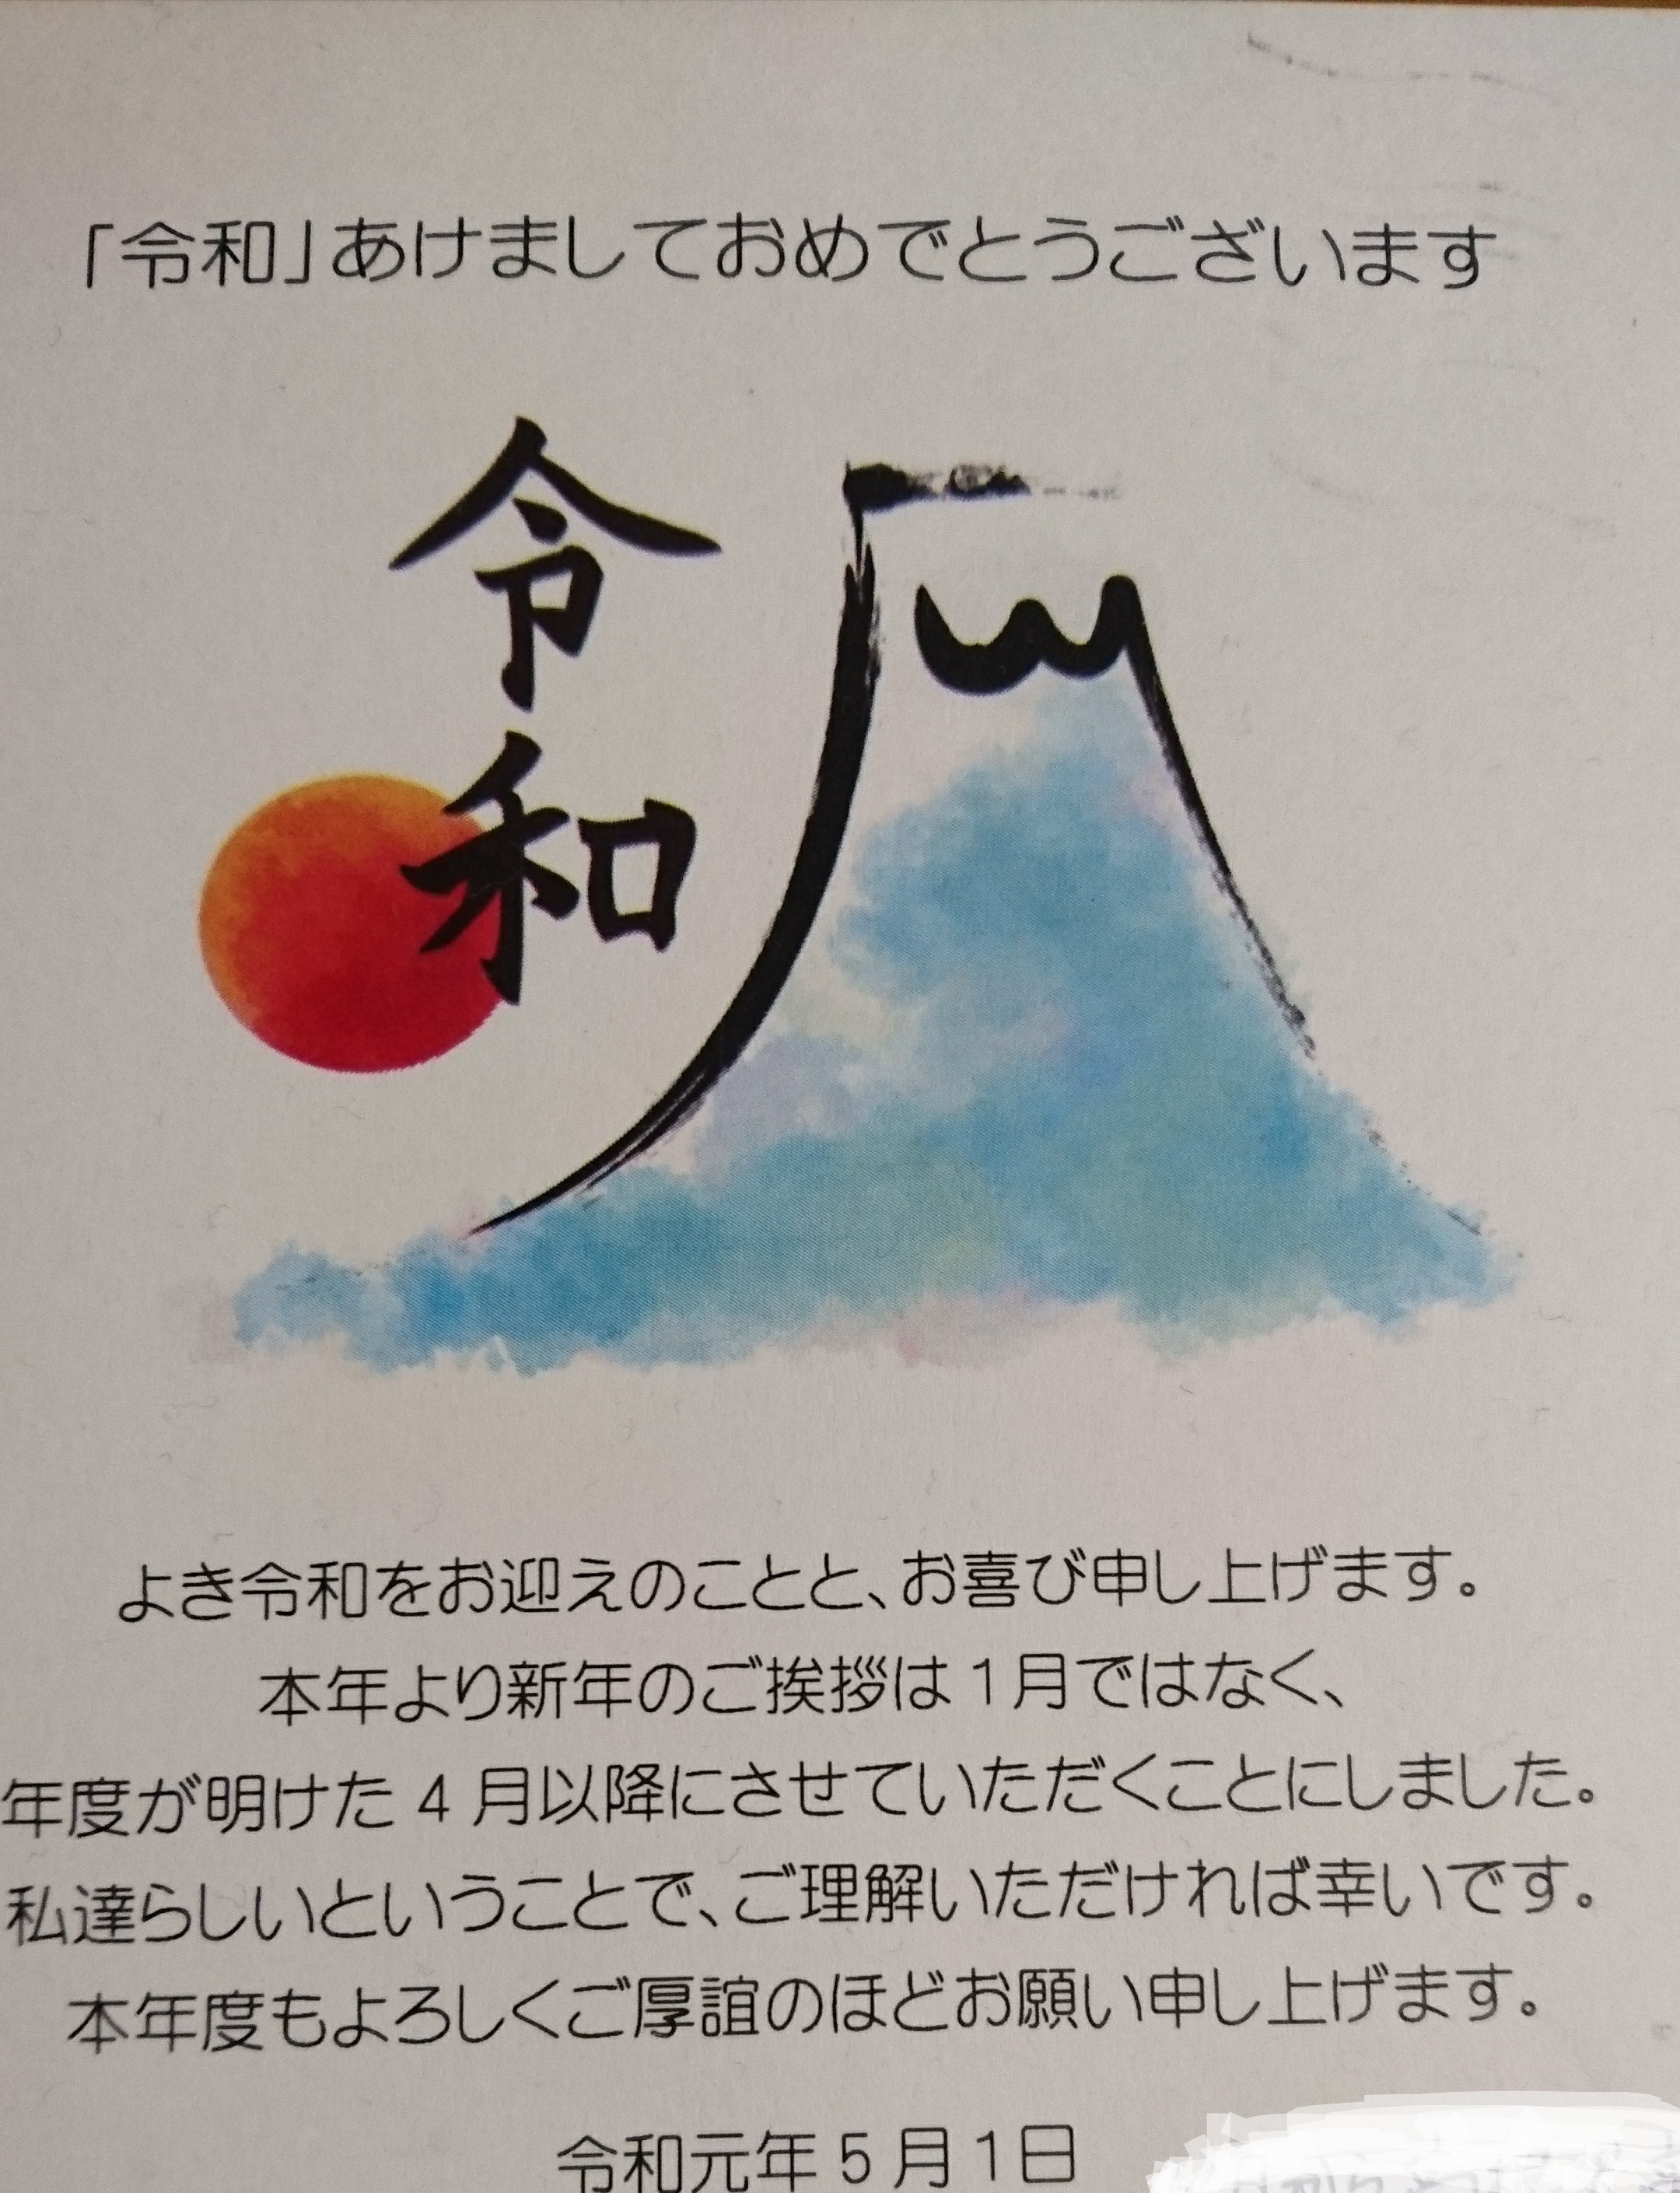 「令和」あけましておめでとうございます
令和
よき令和をお迎えのことと、お喜び申し上げます。
本年より新年のご挨拶は1月ではなく、
年度が明けた4月以降にさせていただくことにしました。
私達らしいということで、ご理解いただければ幸いです。
本年度もよろしくご厚誼のほどお願い申し上げます。
令和元年5月1日